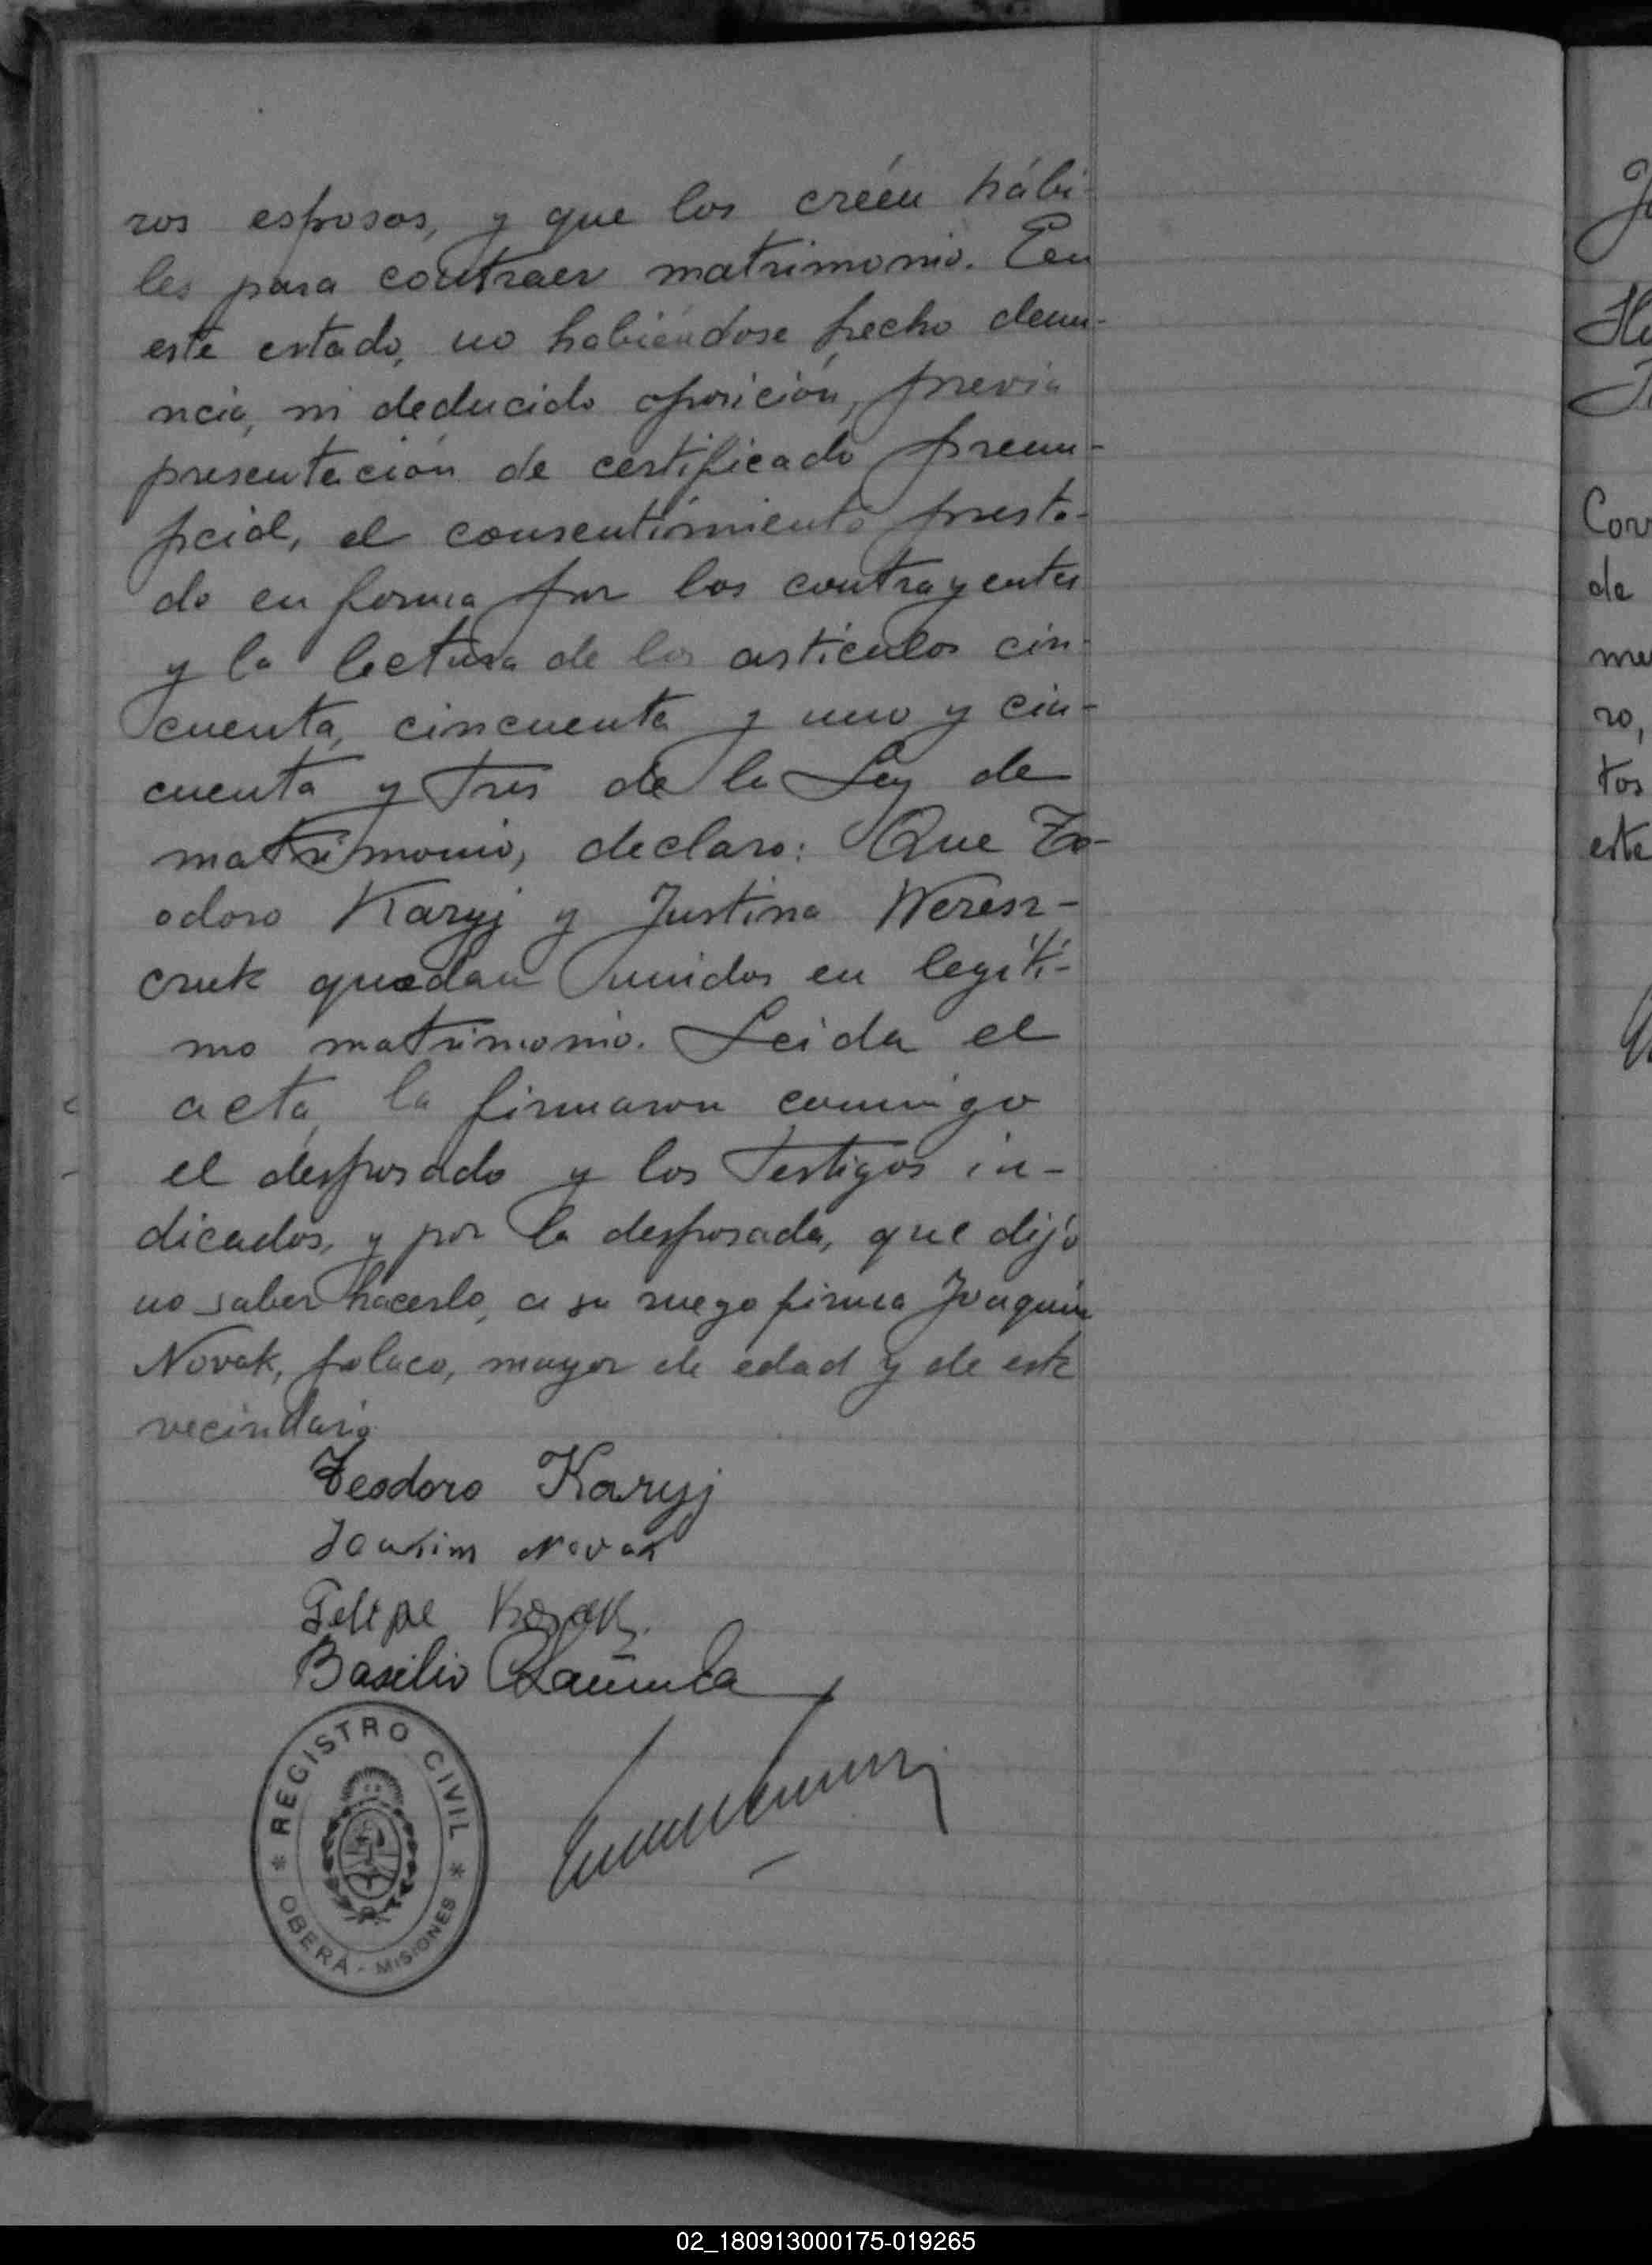 ros esposos, y que los créen hábi-
les para contraer matrimonio. En
este estado, no habiéndose hecho denun-
ncia, ni deducido oposición, previa
presentación de certificado prenu-
pcial, el consentimiento presta-
do en forma por los contrayentes
y la lectura de los artículos cin-
cuenta, cincuenta y uno y cin-
cuenta y tres de la Ley de
matrimonio, declaro: Que Te-
odoro Karyj y Justina Weresz-
cruk quedan unidos en legíti-
mo matrimonio. Leida el
acta, la firmaron conmigo
el desposado y los testigos in-
dicados, y por la desposada, que dijo
no saber hacerlo, a su ruego firma Joaquin
Novak, polaco, mayor de edad y de este
vecindario
Teodoro Karyj
Joakim Novak
Felipe
Basilio
REGISTRO CIVIL
OBERÁ - MISIONES
Con
de
me
ro,
tos
este
02_180913000175-019265